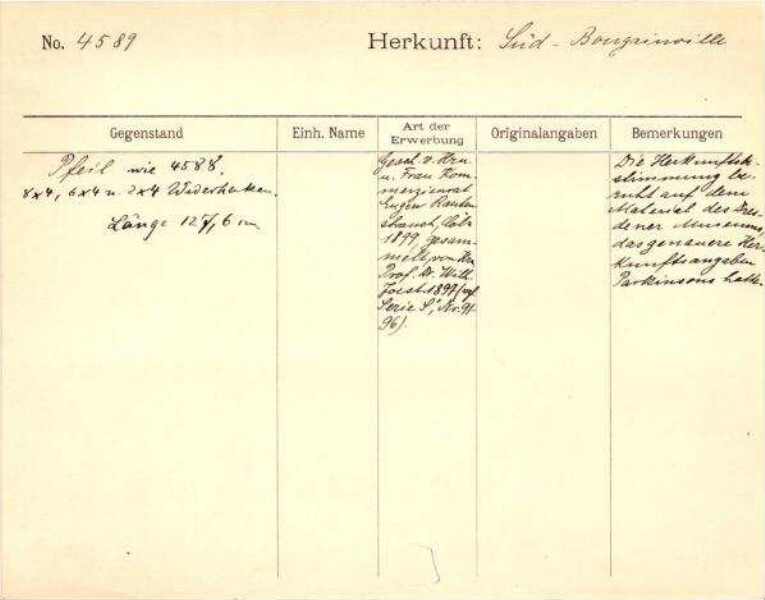 No. 4589
Herkunft: Süd - Bougainville
Gegenstand
Einh. Name
Art der
Erwerbung
Originalangaben
Bemerkungen
Pfeil wie 4588.
8x4, 6x4 u. 2x4 Widerhaken.
Länge 127,6 cm
Gesch. v. Hrn
u. Frau Kom-
merzienrat
Eugen Rauten-
strauch, Cöln
1899, gesam-
melt von Hn
Prof. Dr. Wilh.
Joest 1897 (vgl
Serie S, Nr. 91-
96).
Die Herkunftsbe-
stimmung be-
ruht auf dem
Material des Dres-
dener Museums,
das genauere Her-
kunftsangaben
Parkinsons hatte.